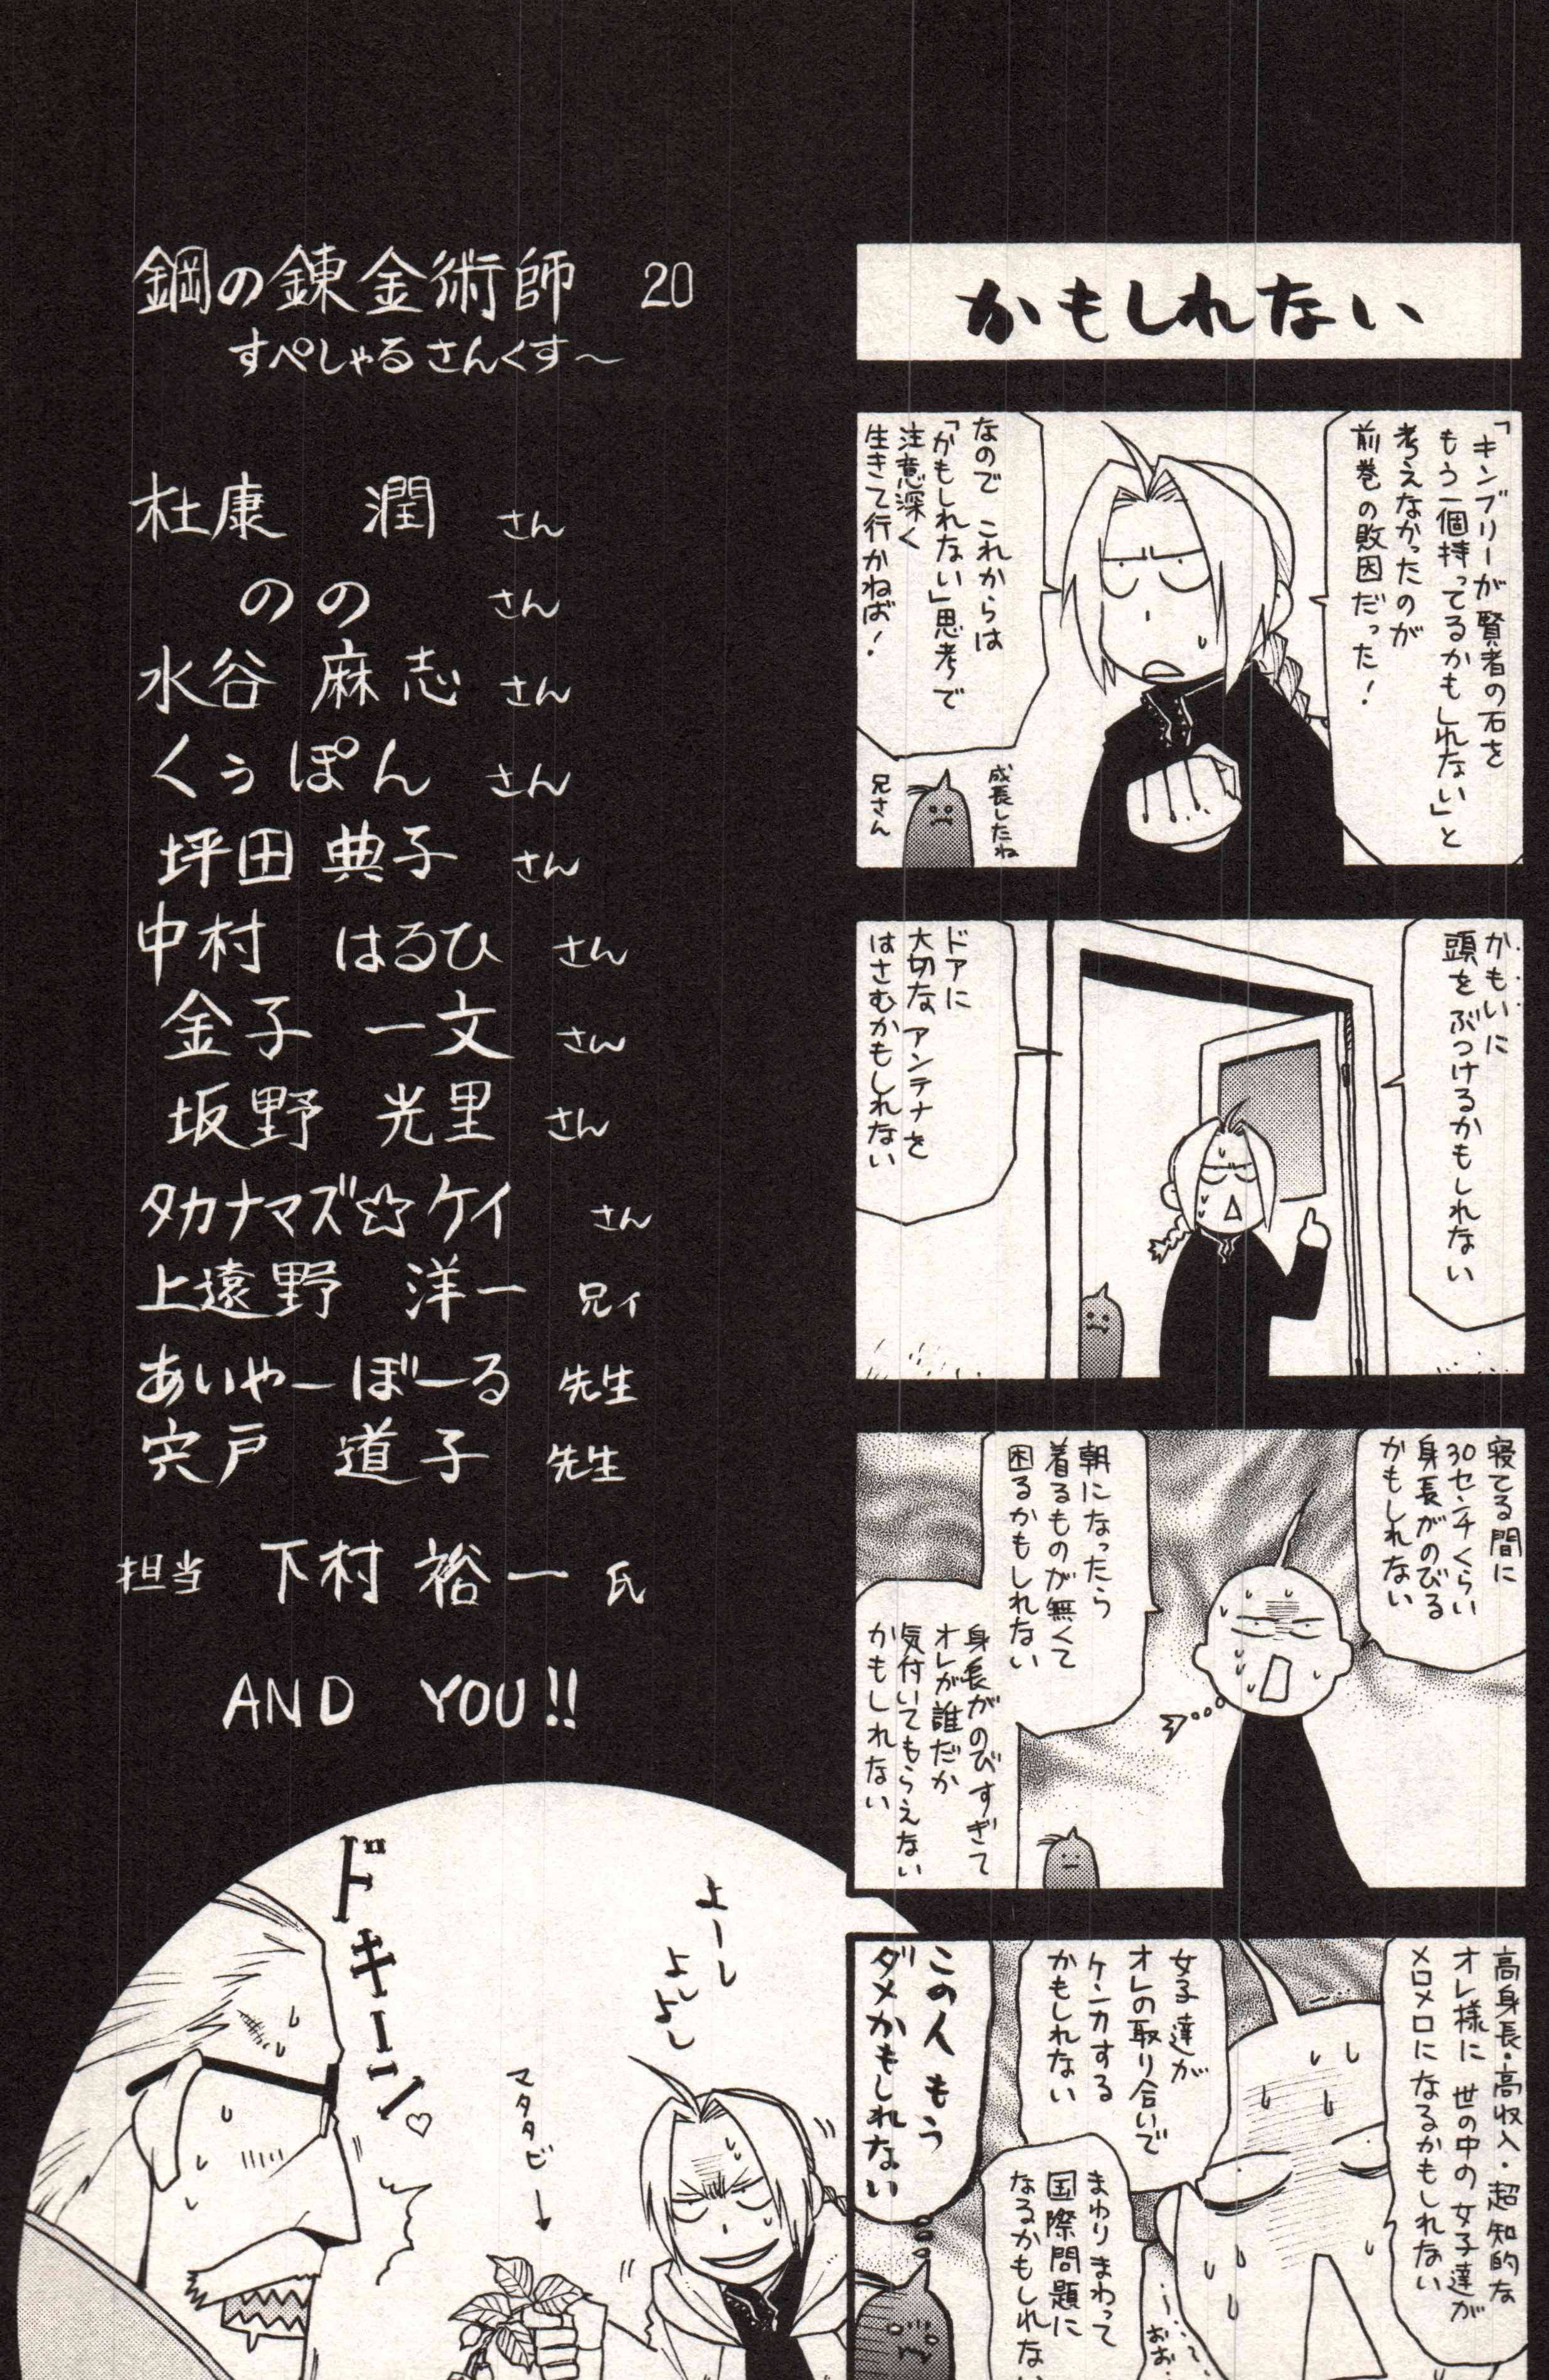 かもしれない
「キンブリーが賢者の石を
もう一個持ってるかもしれない」と
考えなかったのが
前巻の敗因だった!
なので これからは
「かもしれない」思考で
注意深く
生きて行かねば!
成長したね
兄さん
かもいに
頭をぶつけるかもしれない
ドアに
大切なアンテナを
はさむかもしれない
寝てる間に
30センチくらい
身長がのびる
かもしれない
朝になったら
着るものが無くて
困るかもしれない
身長がのびすぎて
オレが誰だか
気付いてもらえない
かもしれない
高身長・高収入・超知的な
オレ様に 世の中の女子達が
メロメロになるかもしれない
女子達が
オレの取り合いで
ケンカする
かもしれない
まわりまわって
国際問題に
なるかもしれな
この人もう
ダメかもしれない
鋼の錬金術師 20
すぺしゃるさんくす〜
杜康 潤 さん
のの さん
水谷 麻志 さん
くぅぽん さん
坪田 典子 さん
中村 はるひ さん
金子 一文 さん
坂野 光里 さん
タカナマズ☆ケイ さん
上遠野 洋一 兄ィ
あいやーぼーる 先生
宍戸 道子 先生
担当 下村 裕一 氏
AND YOU!!
ドキーン♡
よーし
よしよし
マタタビ